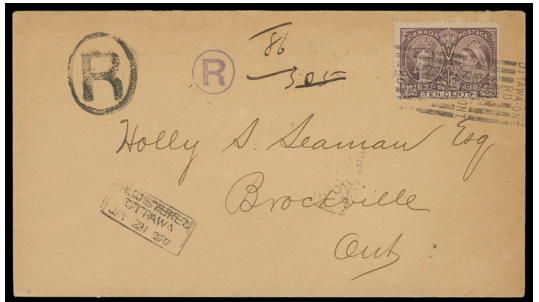 R
R
86
305
CANADA POSTAGE
1837 1897
TEN CENTS
OTTAWA ONT
Holly S. Seaman Esq
Brockville
Ont
REGISTERED
OTTAWA